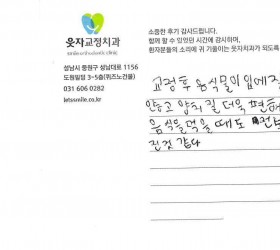 웃자교정치과
성남시 중원구 성남대로 1156
도원빌딩 3~5층(위즈노건물)
031 606 0282
letssmile.co.kr
소중한 후기 감사드립니다.
함께 할 수 있었던 시간에 감사하며,
환자분들의 소리에 귀 기울이는 웃자치과가 되도록
교정후 음식물이 입에
않고 양치 질 더욱 편해
음식들먹을 때도 전보
진것 같다